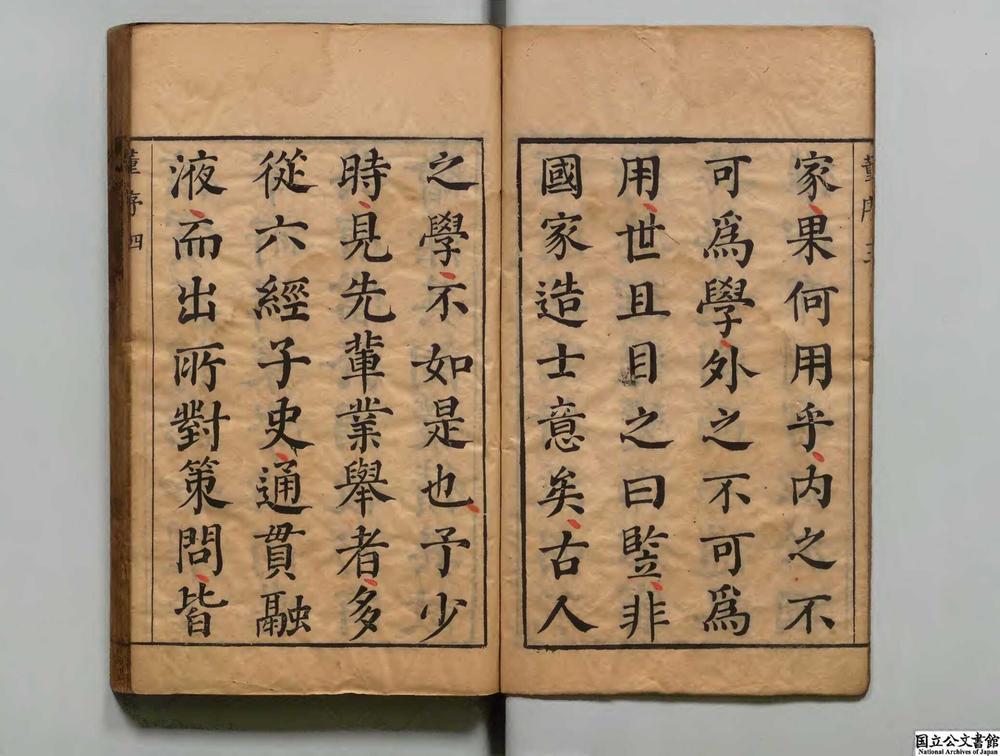 家果何用乎內之不
可爲學外之不可爲
用世且目之曰䀾非
國家造士意矣古人
之學不如是也予少
時見先輩業舉者多
從六經子史通貫融
液而出所對策問皆
董序 四
国立公文書館
National Archives of Japan